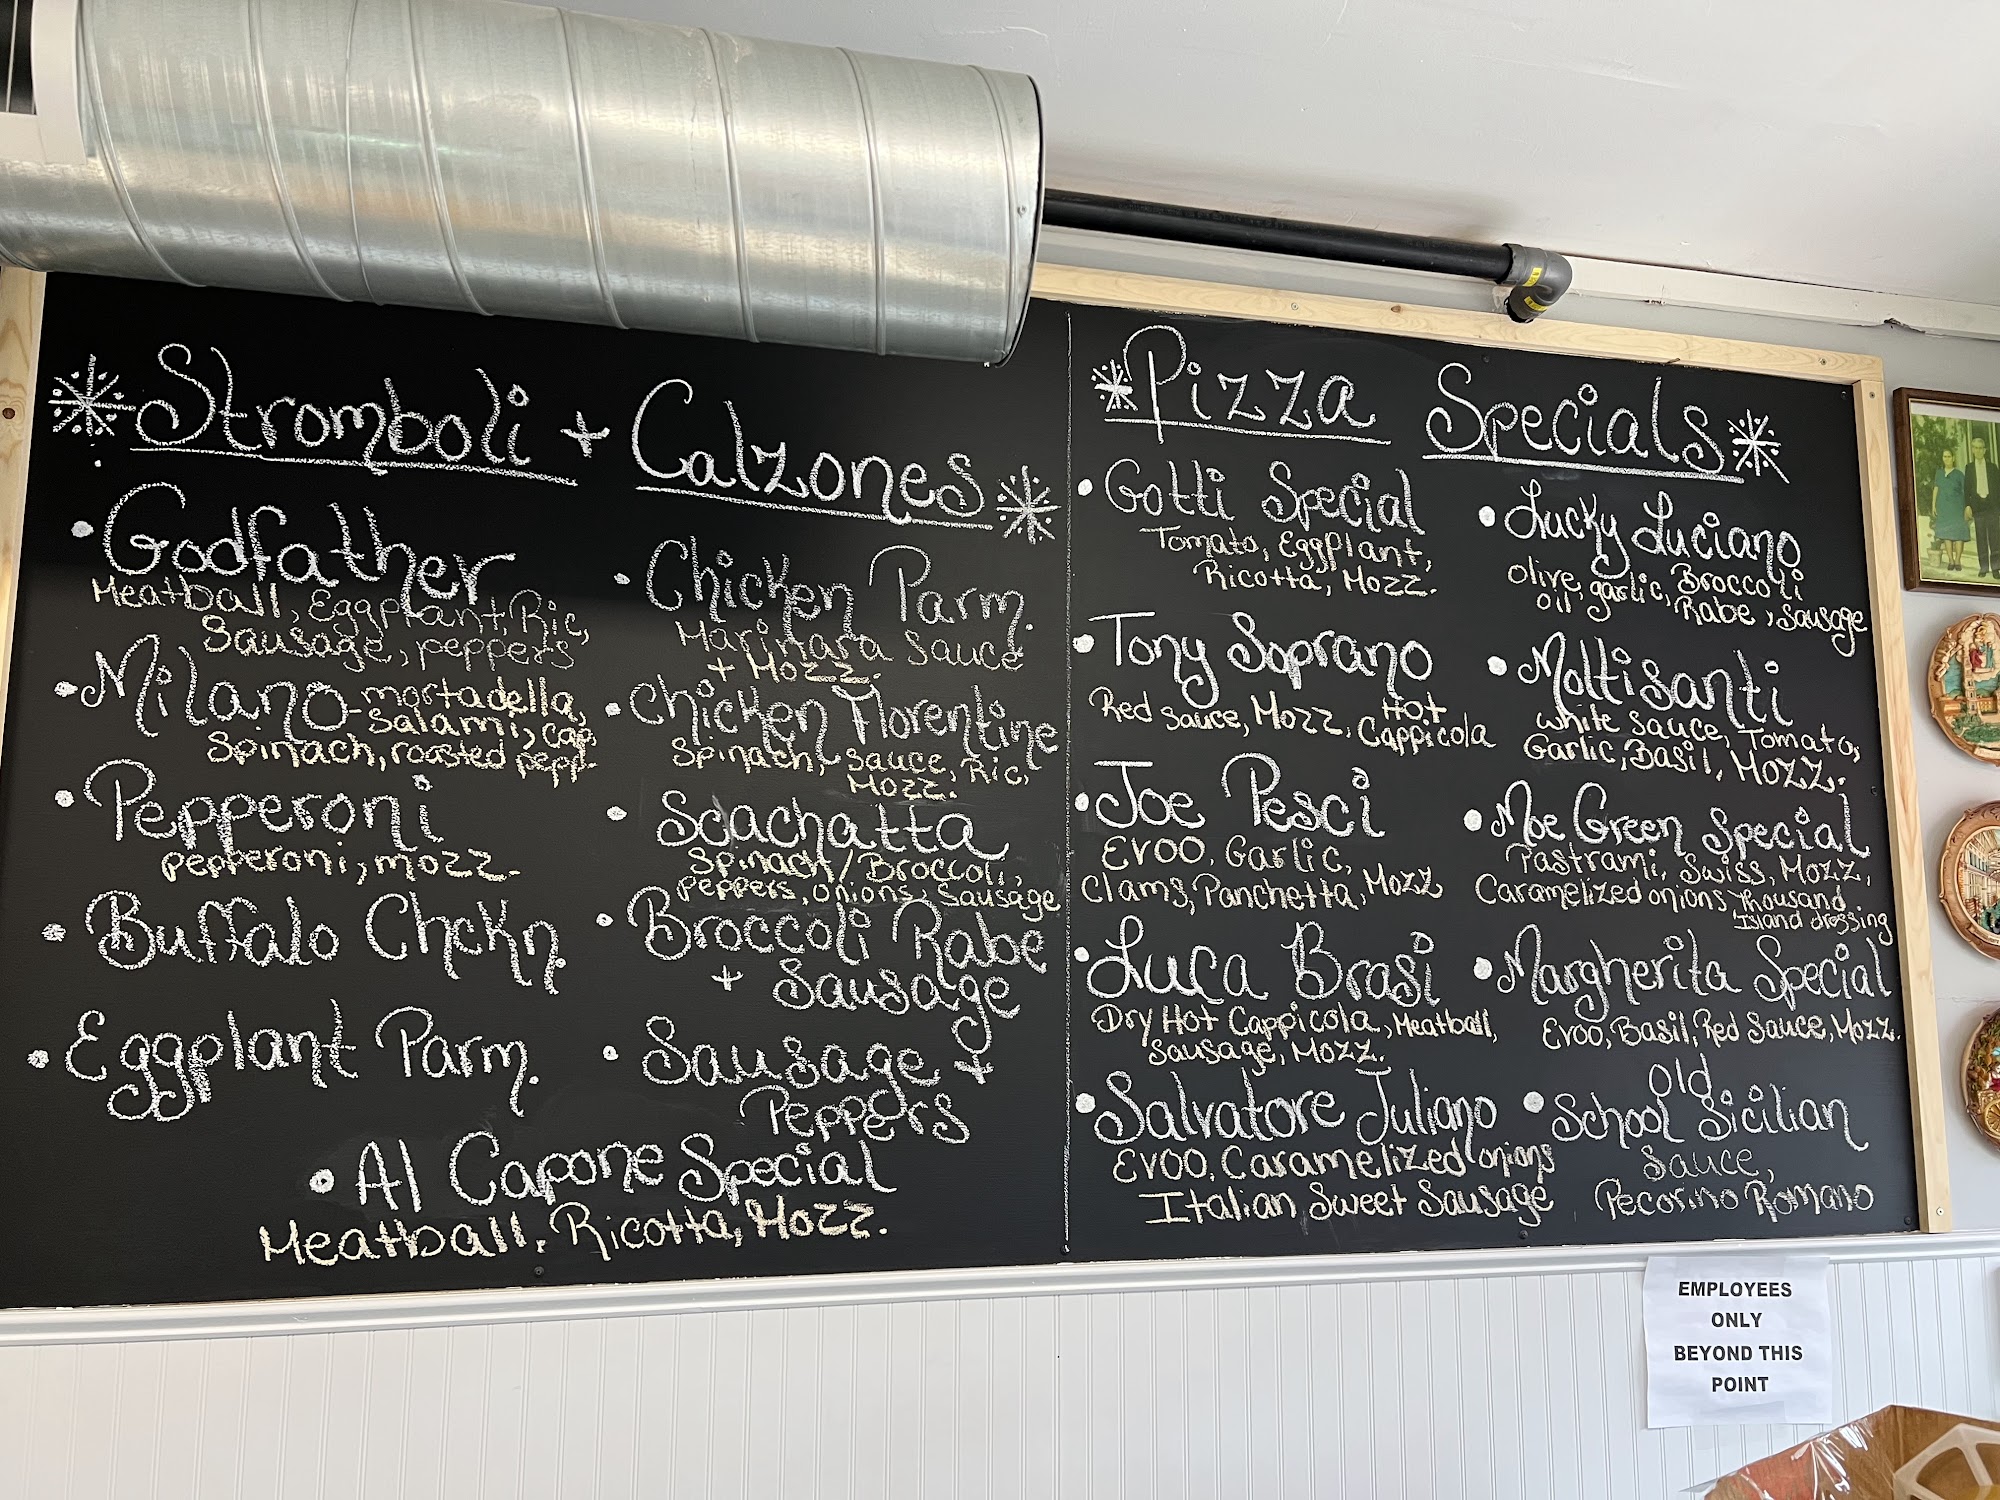 Stromboli + Calzones
• Godfather
Meatball, Eggplant, Ric,
Sausage, peppers
• Milano - mortadella,
salami, cap,
Spinach, roasted pepp.
• Pepperoni
pepperoni, mozz.
• Buffalo Chckn.
• Eggplant Parm.
• Chicken Parm.
Marinara Sauce
+ Mozz.
• Chicken Florentine
Spinach, sauce, Ric,
Mozz.
• Scachatta
Spinach/Broccoli,
peppers, onions, Sausage
• Broccoli Rabe
+ Sausage
• Sausage +
Peppers
• Al Capone Special
Meatball, Ricotta, Mozz.
Pizza Specials
• Gotti Special
Tomato, Eggplant,
Ricotta, Mozz.
• Tony Soprano
Red Sauce, Mozz, Hot
Cappicola
• Joe Pesci
EVOO, Garlic,
Clams, Panchetta, Mozz
• Luca Brasi
Dry Hot Cappicola, Meatball,
Sausage, Mozz.
• Salvatore Juliano
EVOO, Caramelized onions
Italian Sweet Sausage
• Lucky Luciano
olive garlic, Broccoli
oil Rabe, Sausage
• Moltisanti
White Sauce, Tomato,
Garlic, Basil, Mozz.
• Moe Green Special
Pastrami, Swiss, Mozz,
Caramelized onions Thousand
Island drossing
• Margherita Special
Evoo, Basil, Red Sauce, Mozz.
Old
• School Sicilian
Sauce,
Pecorino Romano
EMPLOYEES
ONLY
BEYOND THIS
POINT